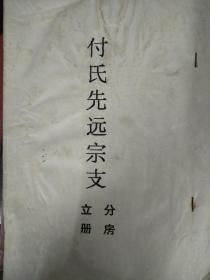 付氏先远宗支
分房
立册